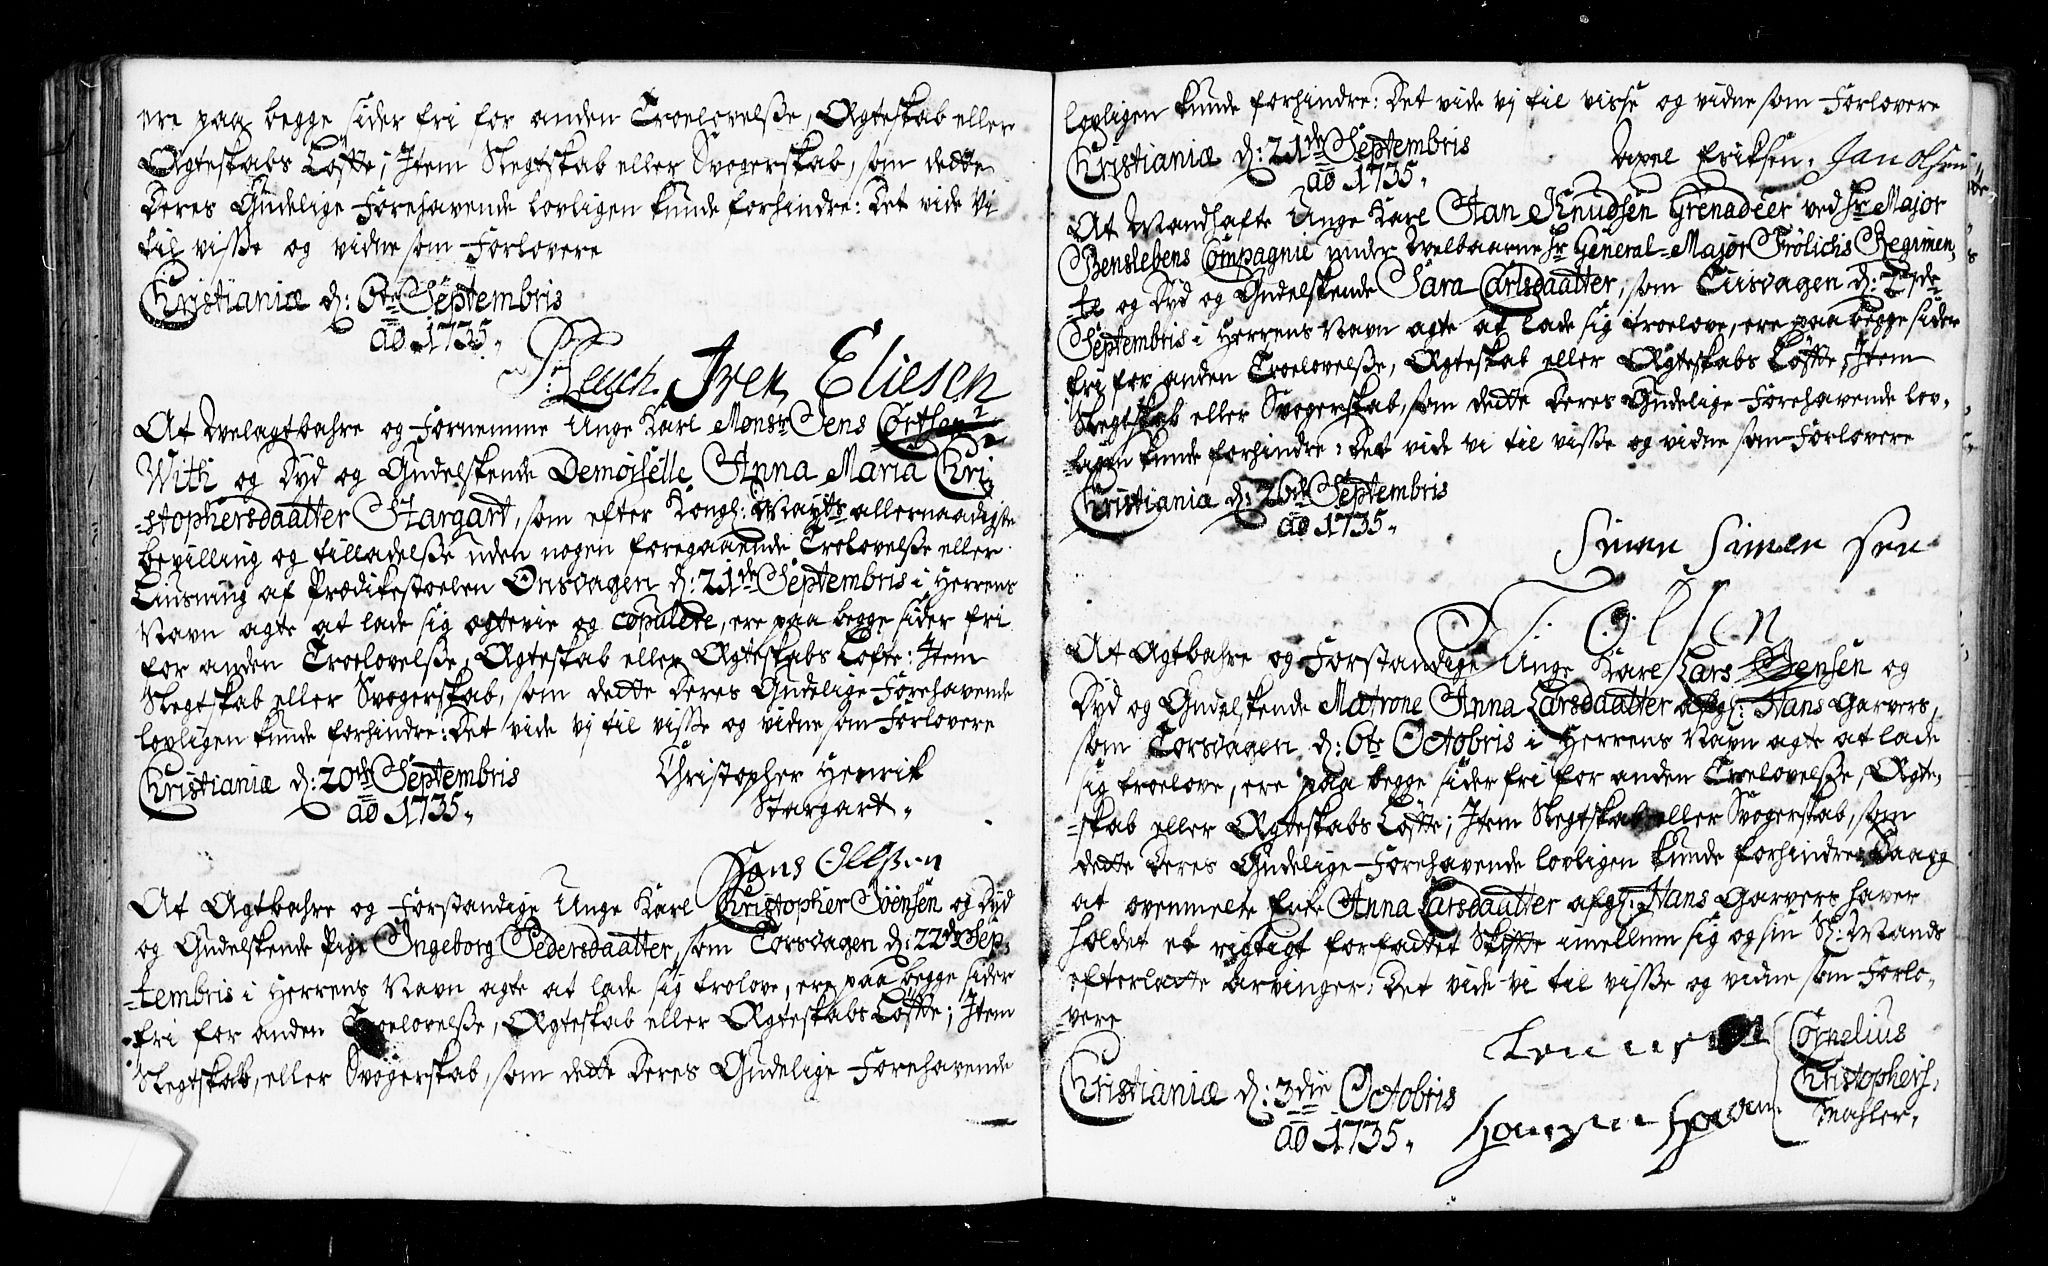 ere paa begge sider fri for anden Troelovelße, Ægteskab eller
Ægteskabs Løfte; Item Slegtskab eller Svogerskab, som dette
Deres Gudelige Forehavende lovligen kunde forhindre: Det vide Vi
til visße og vidne som Forlovere
Christianiæ d: 6te Septembris
aō 1735.
P: Leuch. Iver Eliesen
At Velagtbahre og Fornemme Unge Karl Monsr Jens
With og Dyd og Gudelskende Demoiselle Anna Maria Chri-
-stophersdaatter Stargart, som efter Kongl: Mayts allernaadigste
bevilling og tilladelße uden nogen foregaaende Trolovelße eller
Liusning af Prædikestoelen Onsdagen d: 21de Septembris i Herrens
Navn agte at lade sig ægtevie og copulere, ere paa begge sider fri
for anden Troelovelße, Ægteskab eller Ægteskabs Løfte: Item
Slegtskab eller Svogerskab, som dette Deres Gudelige Forehavende
lovligen kunde forhindre: Det vide vj til visße og vidne som Forlovere
Christianiæ d: 20de Septembris
aō 1735.
Christopher Henrik
Stargardt.
Hans Olßen
At Agtbahre og Forstandige Unge Karl Christopher Söensen og Dyd
og Gudelskende Pige Ingeborg Pedersdaatter, som Torsdagen d: 22de Sep-
-tembris i Herrens Navn agte at lade sig trolove, ere paa begge sider
fri for anden Troelovelße, Ægteskab eller Ægteskabs Løfte; Item
Slegtskab, eller Svogerskab, som dette Deres Gudelige Forehavende
lovligen kunde forhindre: Det vide vj til visse og vidne som Forlovere
Christianiæ d: 21de Septembris
aō 1735.
Axel Eriksen. Jan Olsen
At Mandhafte Unge Karl Jan Knudsen Grenadeer ved Hr Major
Benslebens Compagnie under Velbaarne Hr General-Major Frölichs Regimen-
-te og Dyd og Gudelskende Sara Carlsdaatter, som Tiisdagen d: 27de
Septembris i Herrens Navn agte at lade sig troelove, ere paa begge sider
fri for anden Troelovelße, Ægteskab eller Ægteskabs Løfte; Item
Slegtskab eller Svogerskab, som dette Deres Gudelige Forehavende lov-
-ligen kunde forhindre: Det vide vi til visße og vidne som Forlovere
Christiania d: 26de Septembris
aō 1735.
Simen Simen sen
T. Olsen
At Agtbahre og Forstandige Unge Karl Lars Jensen og
Dyd og Gudelskende Matrone Anna Larsdaatter afgl: Hans Garvers,
som Torsdagen d: 6te Octobris i Herrens Navn agte at lade
sig troelove, ere paa begge sider fri for anden Troelovelße, Ægte-
-skab eller Ægteskabs Løfte; Item Slegtskab eller Svogerskab, som
dette Deres Gudelige Forehavende lovligen kunde forhindre; Saa og
at ovenmelte Enke Anna Larsdaatter afgl: Hans Garvers haver
holdet et rigtigt forfattet Skifte imellem sig og sin Sl: Mands
efterlatte arvinger: Det vide vi til visße og vidne som Forlo-
-vere
Christianiæ d: 3die Octobris
aō 1735.
Cornelius
Christophers:
Mahler.